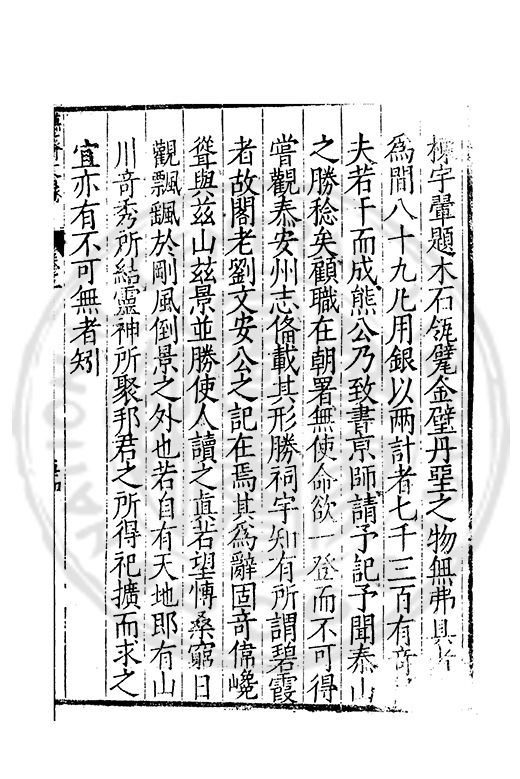 宇翬題木石瓴甓金璧丹堊之物無弗具
為間八十九凡用銀以兩計者七千三百有奇
夫若干而成熊公乃致書京師請予記予聞泰山
之勝稔矣顧職在朝署無使命欲一登而不可得
嘗觀泰安州志俻載其形勝祠宇知有所謂碧霞
者故閣老劉文安公之記在焉其為辭固竒偉巉
聳與茲山茲景並勝使人讀之真若望愽桑窮日
觀飄飄於剛風倒景之外也若自有天地即有山
川竒秀所結靈神所聚邦君之所得祀擴而求之
宜亦有不可無者矧